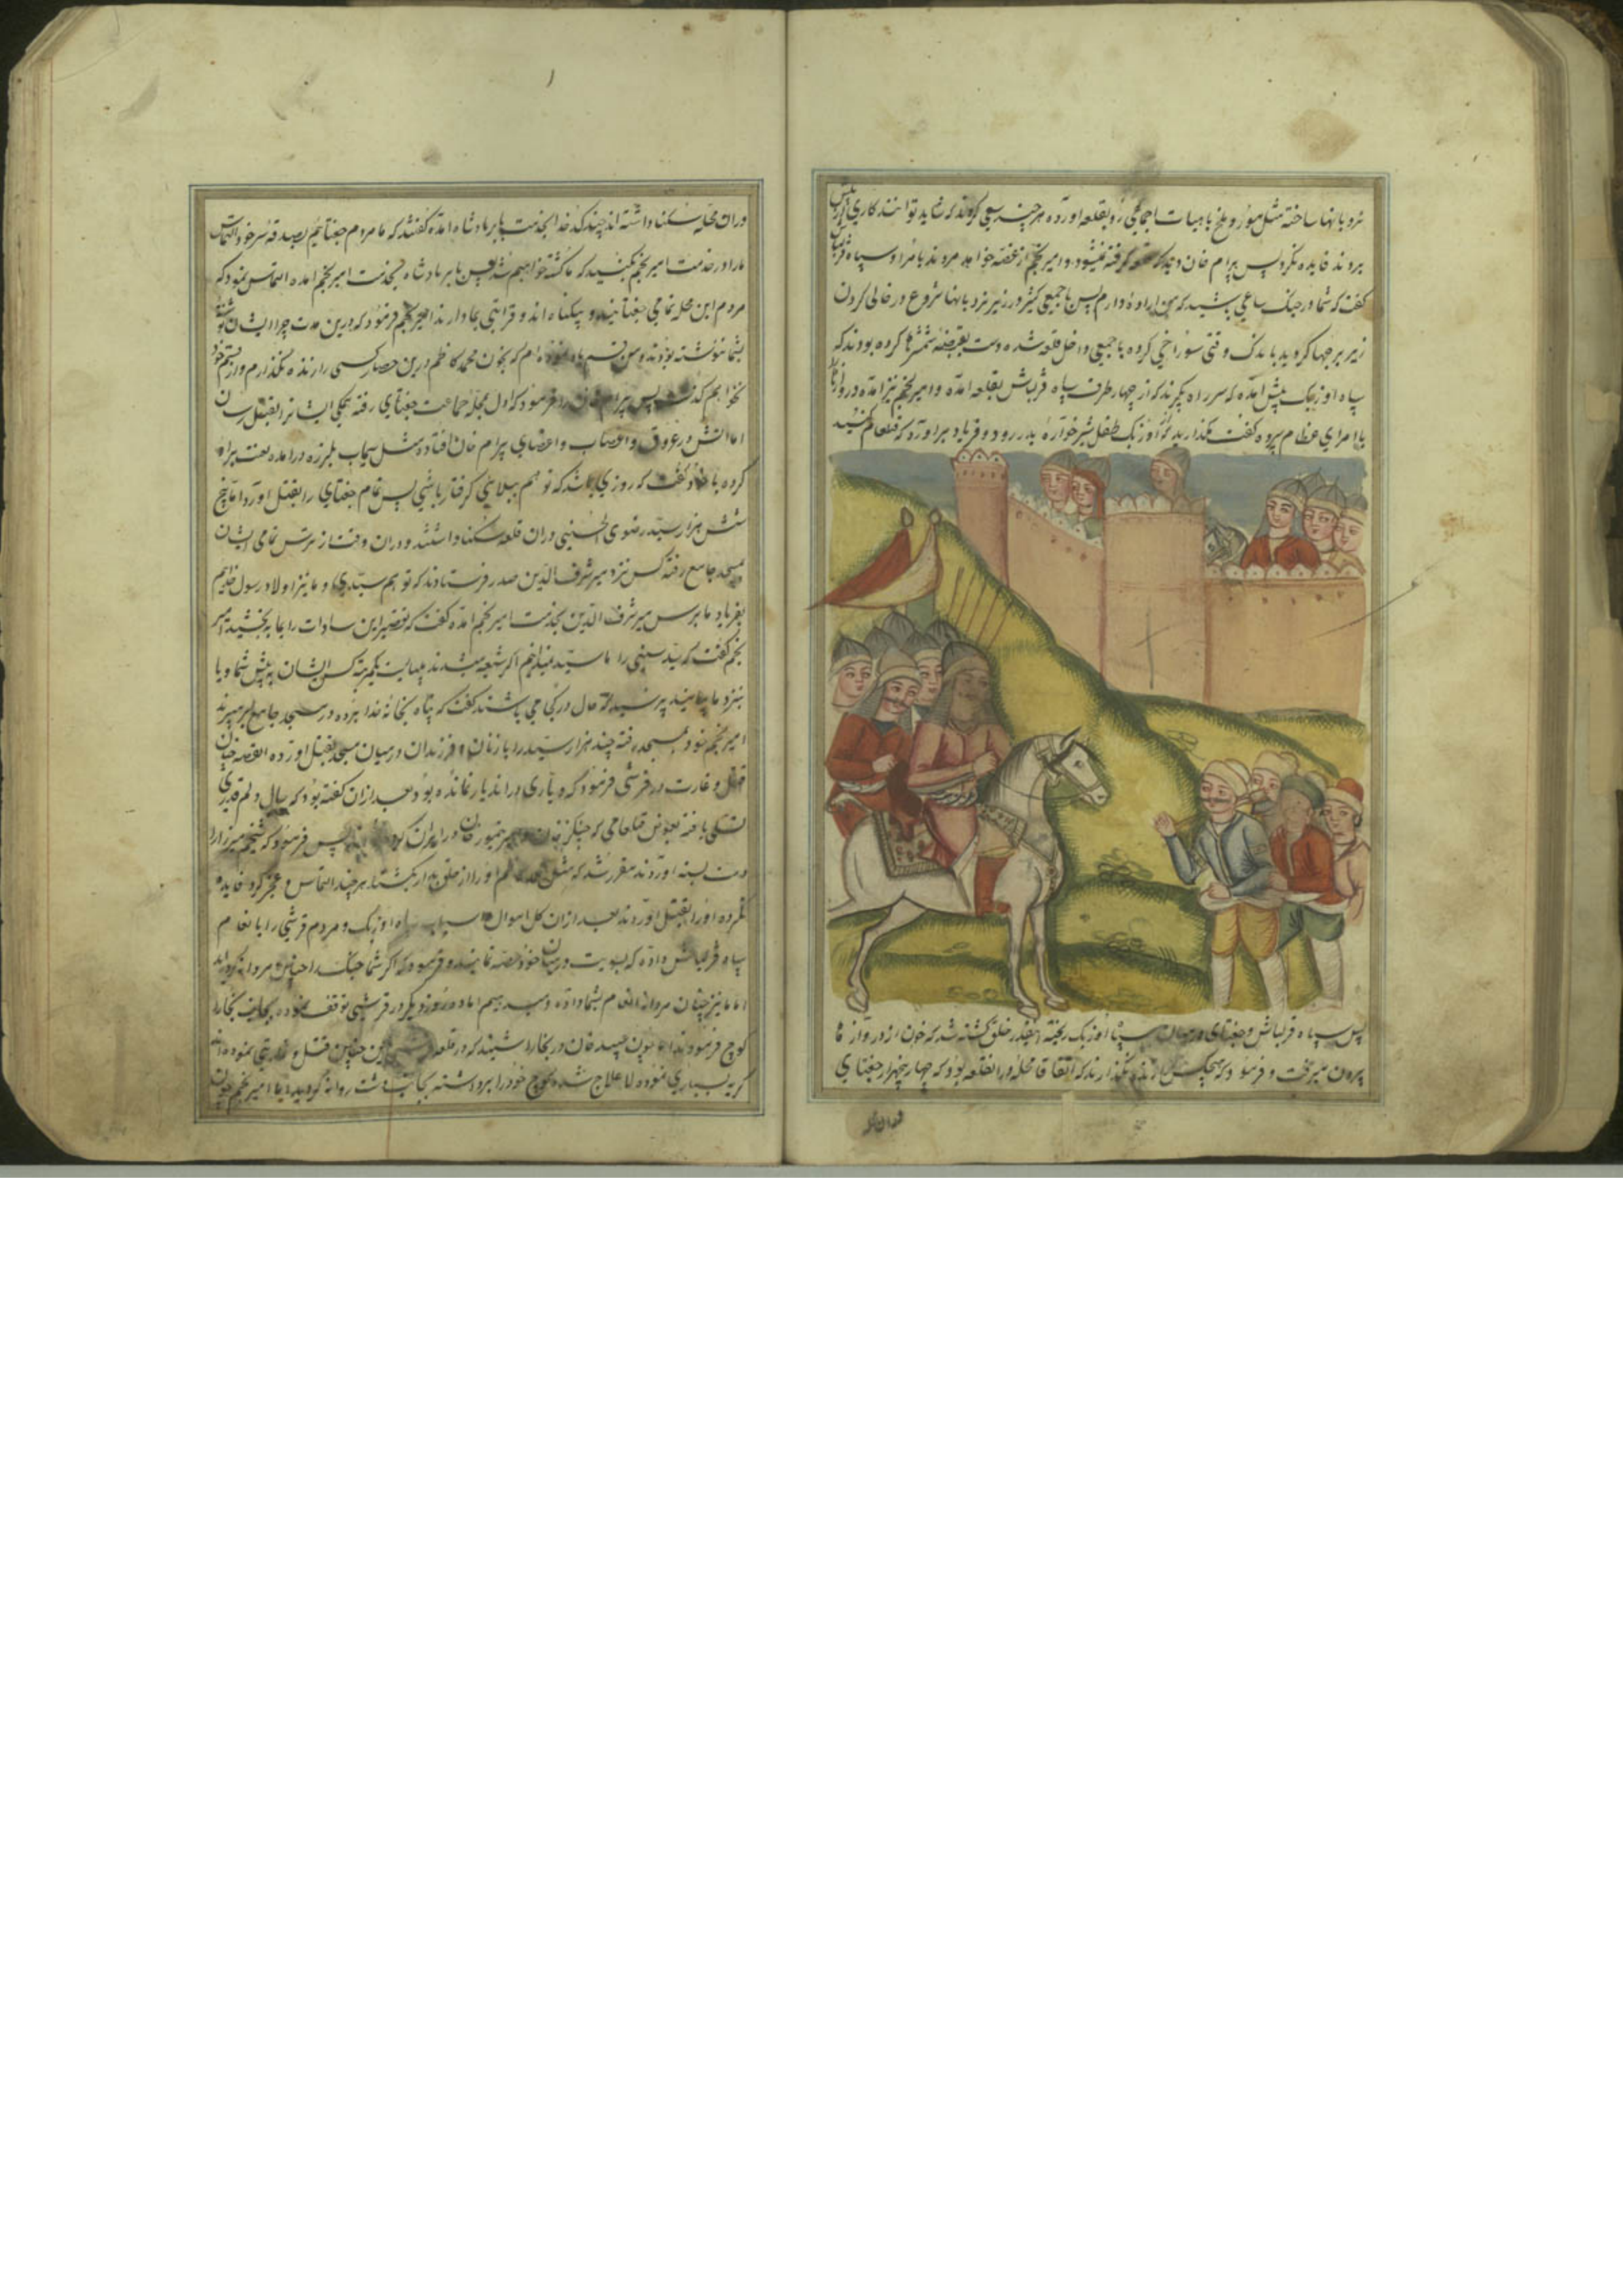 نردبانها ساخته مثل مور و ملخ باهیات اجماعی رو بقلعه اورده هرچند سعی کردند که شاید توانند کاری از پیش
بروند فایده نکرد پس بیرام خان دید که قلعه گرفته نمیشود و امیر نجم از غصه خواهد مرد ندبا مرا و سپاه قزلباش
گفت که شما در جنک ساعی باشید که من اراده دارم پس با جمعی کثیر در زیر نردبانها شروع در خالی کردن
زیر برجها کردید باندک وقتی سوراخی کرده با جمعی داخل قلعه شده دست بقبضه شمشیرها کرده بودند که
سپاه اوزبک پیش امده که سر راه بگیرند که از چهار طرف سپاه قزلباش بقلعه امده و امیر نجم نیز امده در دروازه
با امرای عظام سپرده گفت مگذارید که اوزبک طفل شیرخواره بدر رود و فریاد براورد که قتل عام کنید
پس سپاه قزلباش و جغتای در میان سپاه اوزبک ریخته انقدر خلق کشته شد که خون از دروازه ها
بیرون میرفت و فرمود که هیچکس را زنده نگذارند که اتفاقا محله در انقلعه بود که چهار پنجهزار جغتای
دران
دران محله سکنا داشته اند چند کدخدا بخدمت بابر پادشاه امده گفتند که ما مردم جغتائیم بصدقه سر خود التماس
مارا در خدمت امیر نجم بکنید که ما کشته خواهیم شد پس بابر پادشاه بخدمت امیر نجم امده التماس نمود که
مردم این محله تمامی جغتایند و بیکناه اند و قرابتی بما دارند امیر نجم فرمود که درین مدت چرا ایشان نوشته
بشما ننوشته بودند و من قسم یاد نموده ام که بخون محمد کاظم درین حصار کسی را زنده نگذارم و از قسم خود
نخواهم گذشت پس بیرام خان را فرمود که اول بمحله جماعت جغتای رفته همگی ایشانرا بقتل رسان
اما اتش در عروق و اعصاب و اعضای بیرام خان افتاده مثل سیماب بلرزه درامده لعنت براه
کرده با خود گفت که روزی باشد که تو هم ببلایی گرفتار باشی پس تمام جغتای را بقتل اورد اما پنج
شش هزار سید رضوی الحسینی دران قلعه سکنا داشتند و دران وقت از ترس تمامی ایشان
بمسجد جامع رفته کس نزد میر شرف الدین صدر فرستادند که تو هم سیدی و ما نیز اولاد رسول خدایم
بفریاد ما برس میر شرف الدین بخدمت امیر نجم امده گفت که تقصیر این سادات را بما ببخشید امیر
نجم گفت که سید سنی را ما سید نمیدانیم اگر شیعه میشدند میبایست یکمرتبه کس ایشان پیش شما و یا
بنزد ما بیایند پرسید که حال در کجا می باشند گفت که پناه بخانه خدا برده در مسجد جامع بسر میبرند
امیر نجم خود بمسجد رفته چند هزار سید را با زنان و فرزندان در میان مسجد بقتل اورده القصه چنان
قتل و غارت در قرشی فرمود که دیاری در اندیار نمانده بود بعد ازان گفته بود که حال دلم قدری
تسلی یافته بعوض قتلعامی که چنگیز خان و امیر تیمور خان در ایران کرده اند پس فرمود که شیخم میرزا را
دست بسته اوردند مقرر شد که هرچند التماس و عجز کرد فایده
نکرده اورا بقتل اوردند بعد ازان کل اموال و اسباب سپاه اوزبک و مردم قرشی را بانعام
سپاه قزلباش داده که بسویت در میان خود قسمت نمایند و فرمود که اگر شما جنک را چنین مردانه کردید
اما ما نیز چنان مردانه انعام بشما داده و میدهیم اما دو روز دیگر در قرشی توقف نموده بجانب بخارا
کوچ فرمودند اما چون عبید خان در بخارا شنید که در قلعه قرشی این چنین قتل و غارتی نموده اند
گریه بسیاری نموده لاعلاج شده کوچ خود را برداشته بجانب دشت روانه گردید اما امیر نجم چون